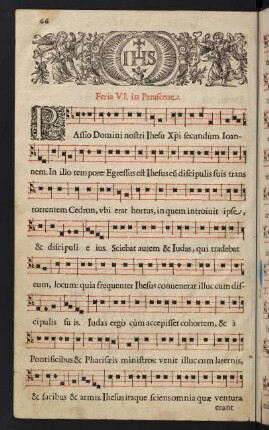 66
IHS
Feria VI. in Parasceue.
PAssio Domini nostri Ihesu Xpi secundùm Ioan-
nem. In illo tempore: Egressus est Ihesus cũ discipulis suis trans
torrentem Cedron, vbi erat hortus, in quem introiuit ipse,
& discipuli e ius. Sciebat autem & Iudas, qui tradebat
eum, locum: quia frequenter Ihesus conuenerat illuc cum dis-
cipulis su is. Iudas ergo cùm accepisset cohortem, & à
Pontificibus & Pharisæis ministros: venit illuc cum laternis,
& facibus & armis. Ihesus itaque sciens omnia quæ ventura
erant